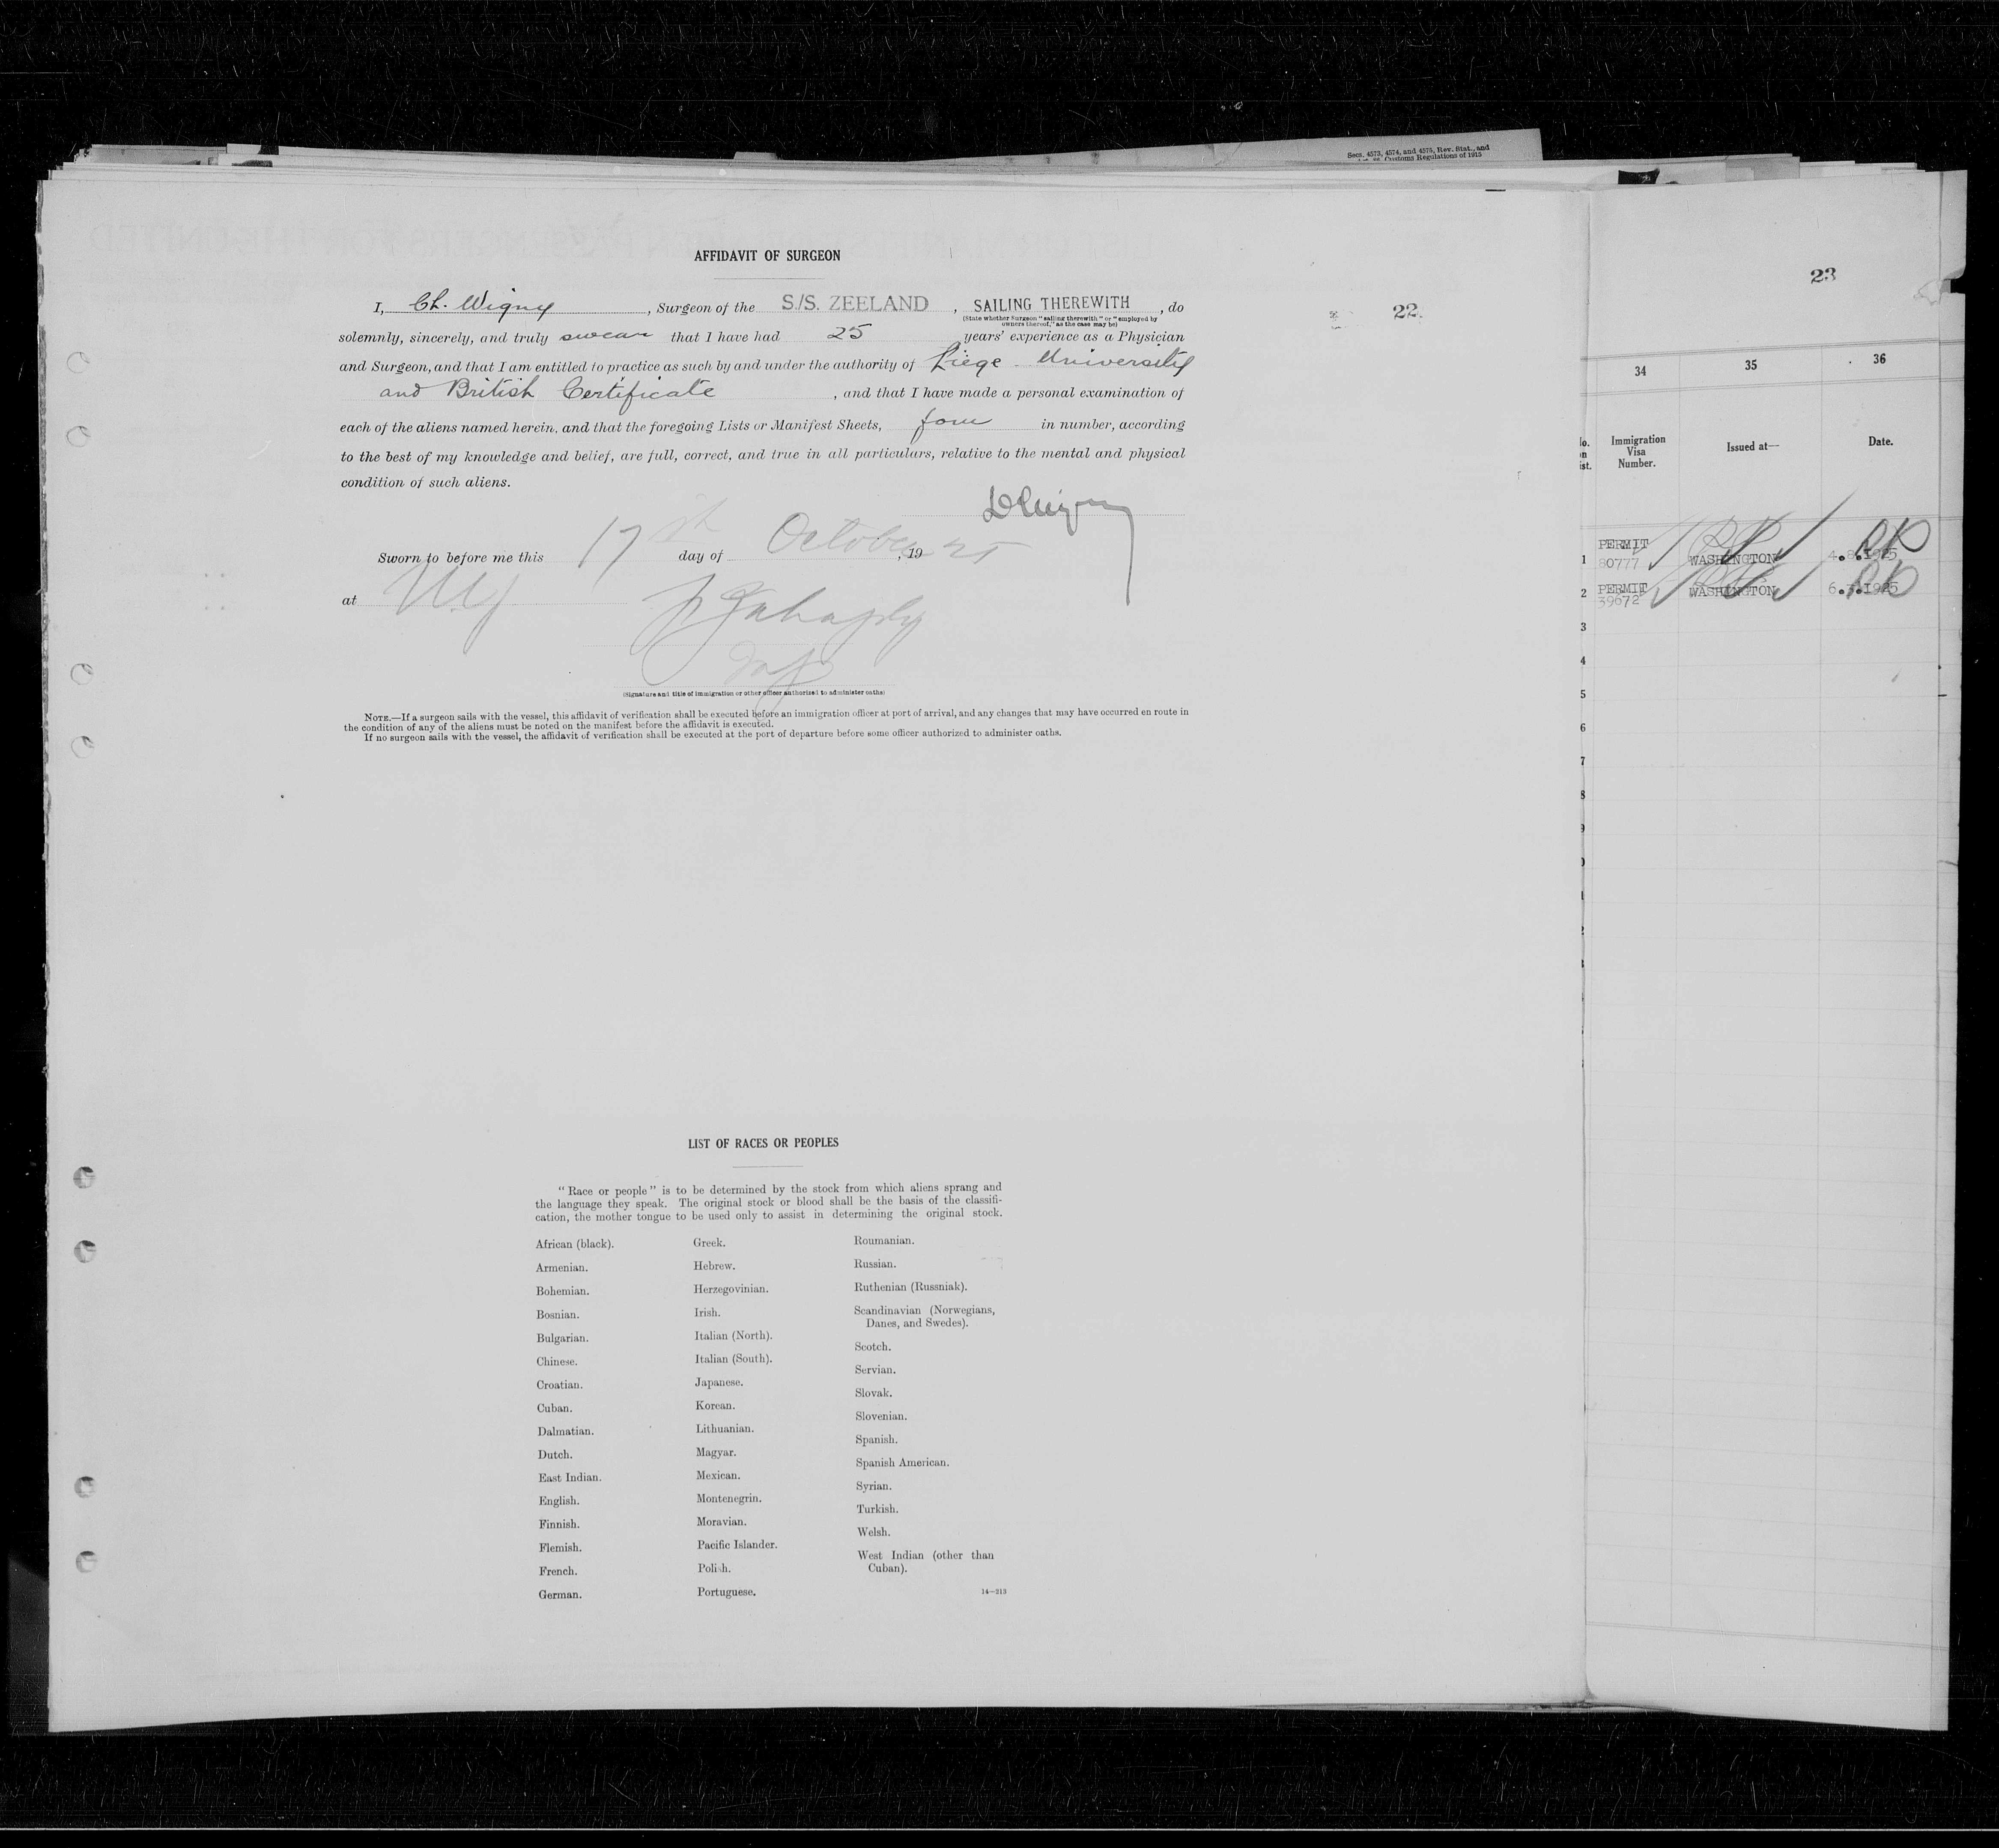 Secs. 4573, 4574, and 4575, Rev. Stat., and
Customs Regulations of 1915
AFFIDAVIT OF SURGEON
I, Ch. Wigny, Surgeon of the S./S. ZEELAND, SAILING THEREWITH, do
(State whether Surgeon "sailing therewith" or "employed by
owners thereof," as the case may be)
solemnly, sincerely, and truly swear that I have had 25 years' experience as a Physician
and Surgeon, and that I am entitled to practice as such by and under the authority of Liege University
and British Certificate, and that I have made a personal examination of
each of the aliens named herein, and that the foregoing Lists or Manifest Sheets, four in number, according
to the best of my knowledge and belief, are full, correct, and true in all particulars, relative to the mental and physical
condition of such aliens.
Sworn to before me this 17th day of October, 1925
at NY
(Signature and title of immigration or other officer authorized to administer oaths)
NOTE.—If a surgeon sails with the vessel, this affidavit of verification shall be executed before an immigration officer at port of arrival, and any changes that may have occurred en route in
the condition of any of the aliens must be noted on the manifest before the affidavit is executed.
If no surgeon sails with the vessel, the affidavit of verification shall be executed at the port of departure before some officer authorized to administer oaths.
LIST OF RACES OR PEOPLES
"Race or people" is to be determined by the stock from which aliens sprang and
the language they speak. The original stock or blood shall be the basis of the classifi-
cation, the mother tongue to be used only to assist in determining the original stock.
African (black).
Armenian.
Bohemian.
Bosnian.
Bulgarian.
Chinese.
Croatian.
Cuban.
Dalmatian.
Dutch.
East Indian.
English.
Finnish.
Flemish.
French.
German.
Greek.
Hebrew.
Herzegovinian.
Irish.
Italian (North).
Italian (South).
Japanese.
Korean.
Lithuanian.
Magyar.
Mexican.
Montenegrin.
Moravian.
Pacific Islander.
Polish.
Portuguese.
Roumanian.
Russian.
Ruthenian (Russniak).
Scandinavian (Norwegians,
Danes, and Swedes).
Scotch.
Servian.
Slovak.
Slovenian.
Spanish.
Spanish American.
Syrian.
Turkish.
Welsh.
West Indian (other than
Cuban).
14—213
22.
23
34 35 36
Immigration
Visa
Number.
Issued at—
Date.
1 PERMIT
80777 WASHINGTON 4.8.1925
2 PERMIT
39672 WASHINGTON 6. .1925
3
4
5
6
7
8